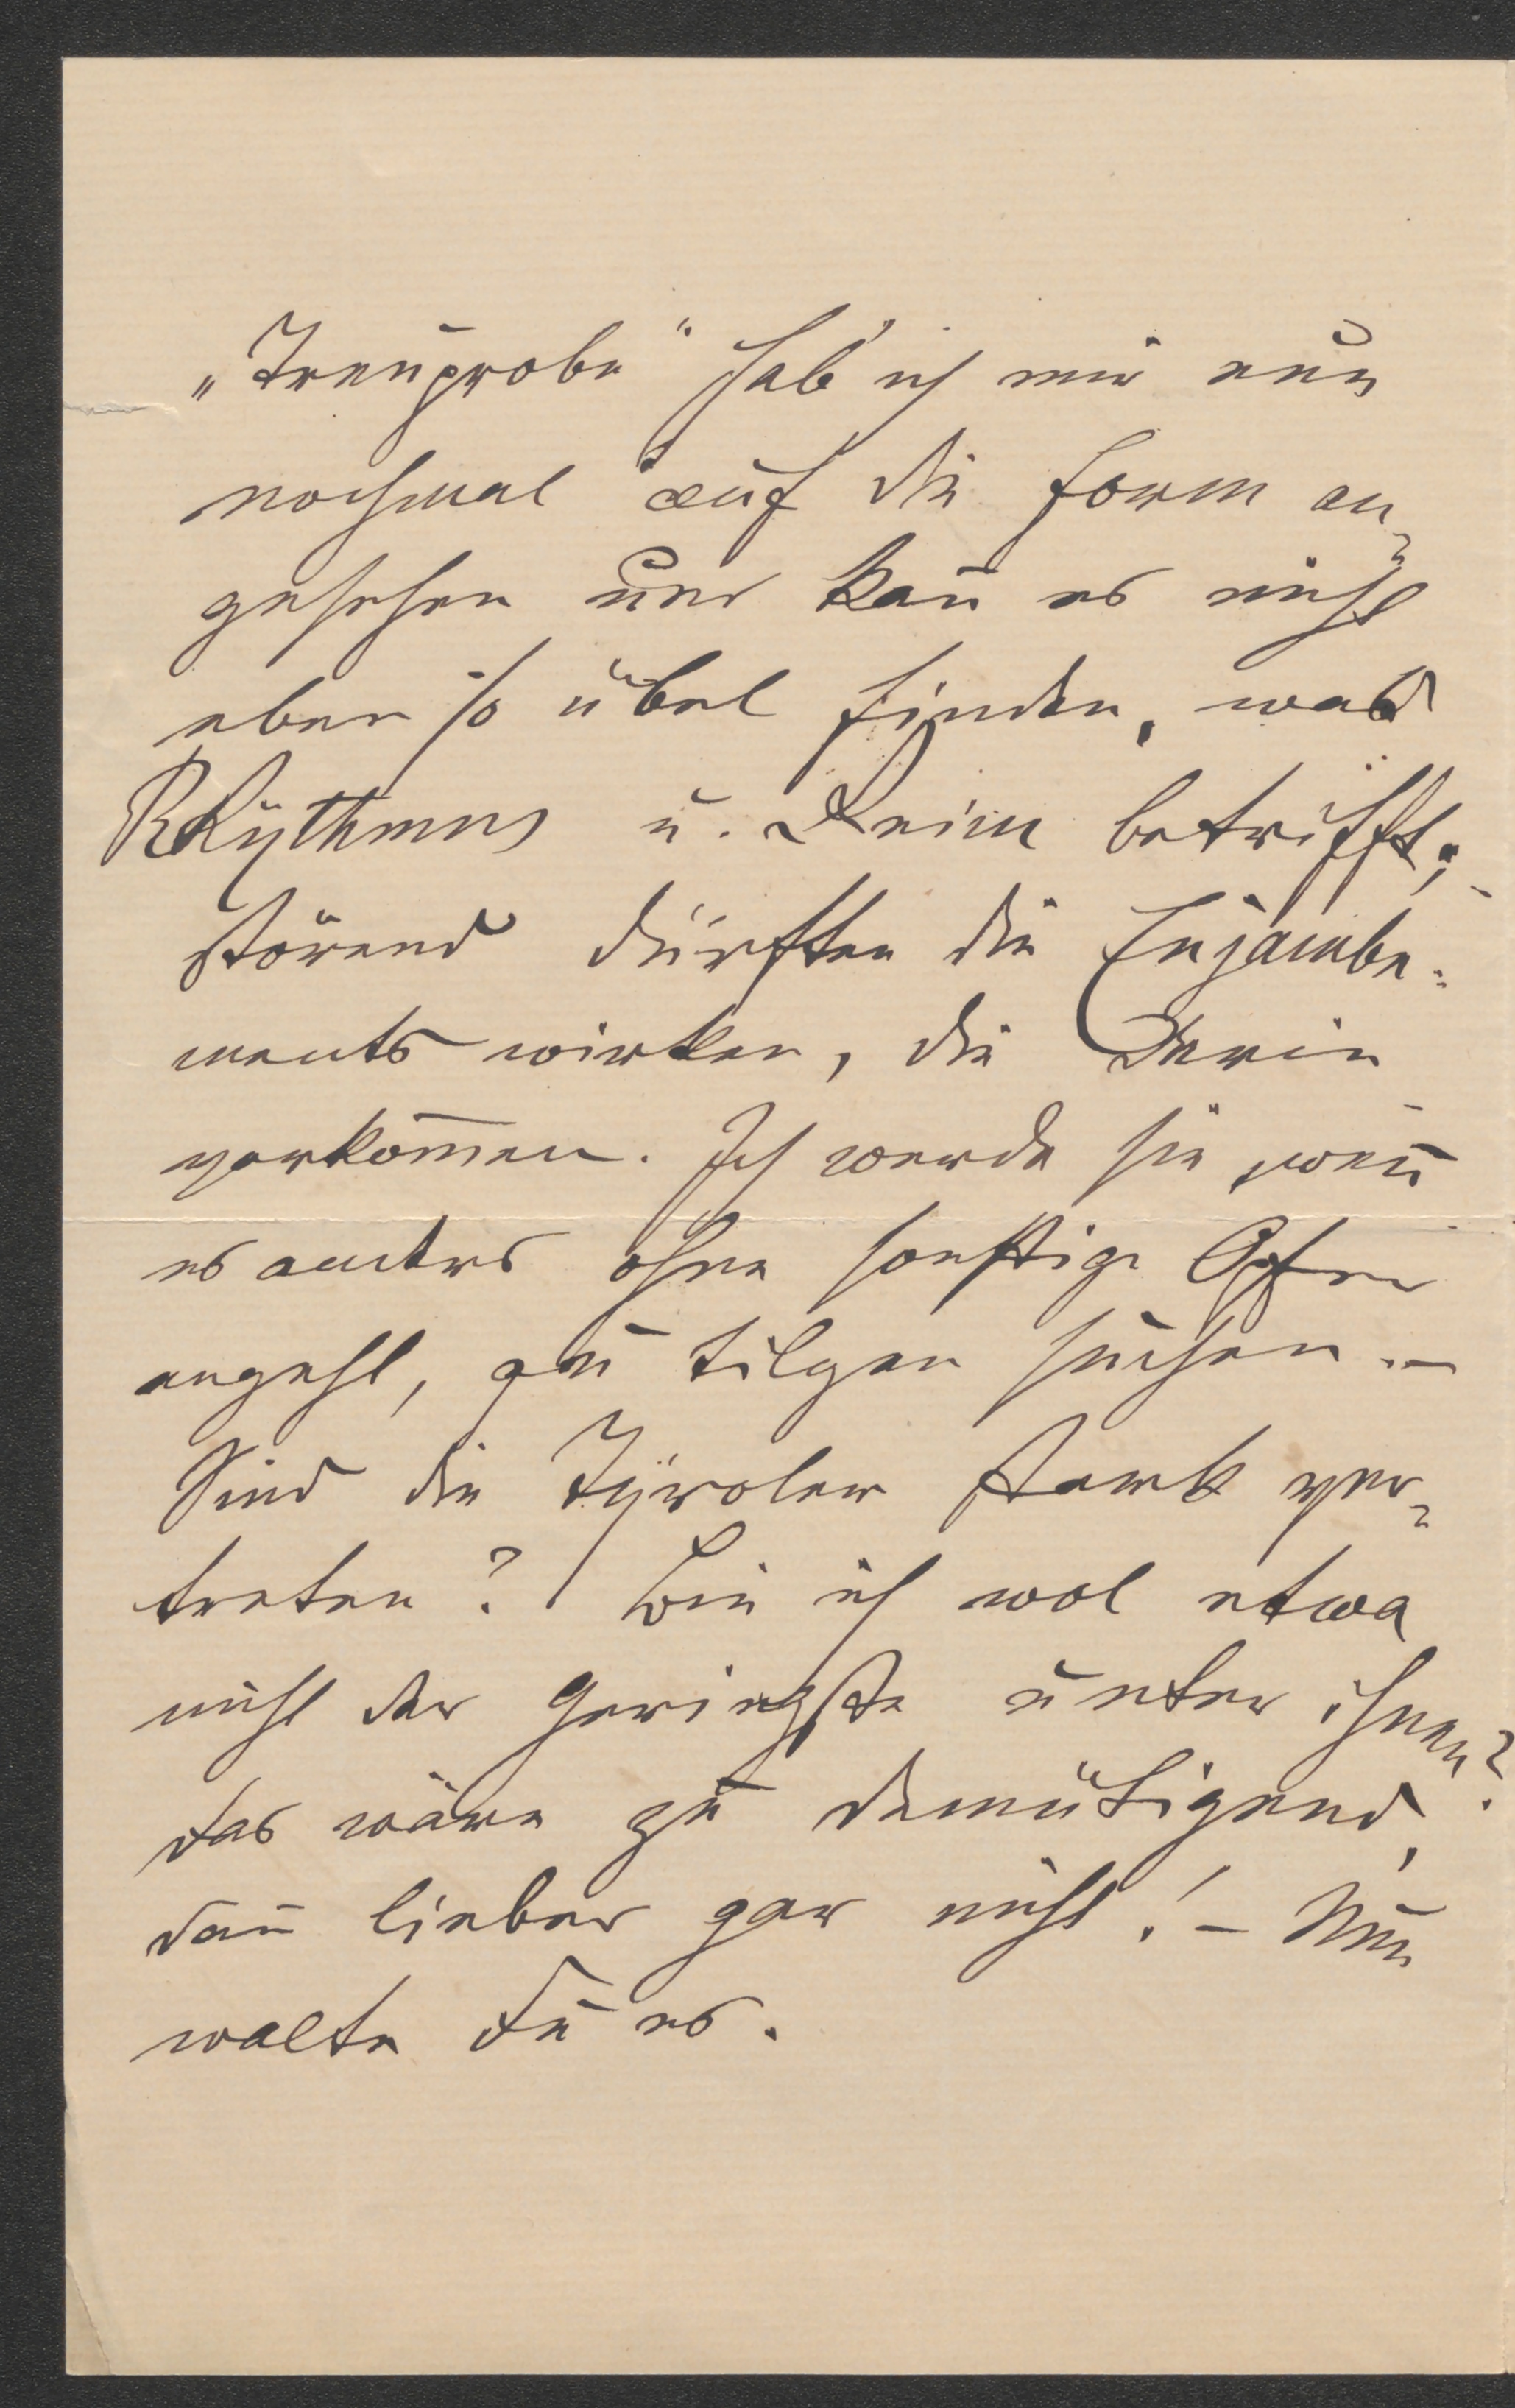 „Treuprobe“ hab' ich mir nun
nochmal auf die Form an-
gesehen und kan̄ es nicht
eben so übel finden, was
Rhÿthmus u. Reim betrifft;
störend dürften die Enjambe-
ments wirken, die darin
vorkom̄en. Ich werde sie, wen̄
es anders ohne sonstige Opfer
angeht, zu tilgen suchen. –
Sind die Tÿroler stark ver-
treten? Bin ich wol etwa
nicht der Geringste unter ihnen?
das wäre zu demütigend,
dan̄ lieber gar nicht! – Nun
walte du es.